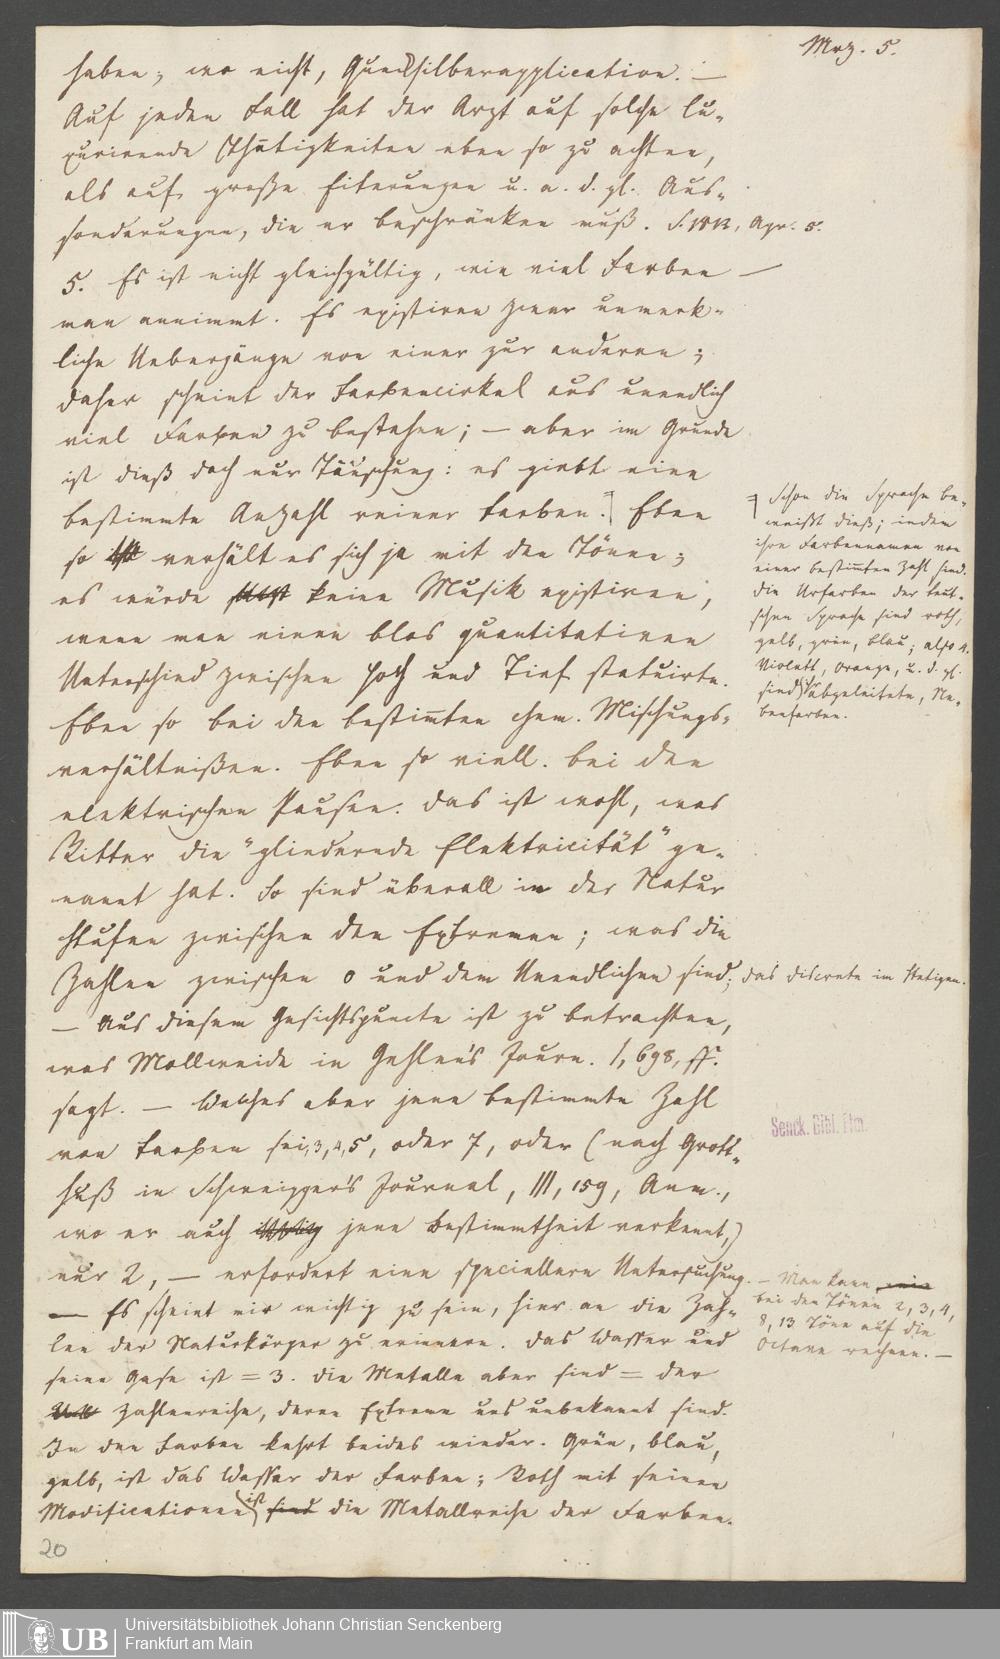 Mrz. 5.
haben; wo nicht, Quecksilberapplication. —
Auf jeden Fall hat der Arzt auf solche lu-
xurirende Thätigkeiten eben so zu achten,
als auf große Eiterungen u. a. d. gl. Aus-
sonderungen, die er beschränken muß. S. 1812, Apr. 5.
5. Es ist nicht gleichgültig, wie viel Farben —
man annimmt. Es existiren zwar unmerk-
liche Uebergänge von einer zur anderen;
daher scheint der Farbencirkel aus unendlich
viel Farben zu bestehen; — aber im Grunde
ist dieß doch nur Täuschung: es giebt eine
bestimmte Anzahl reiner Farben. Eben
so verhält es sich ja mit den Tönen;
es würde keine Musik existiren,
wenn man einen blos quantitativen
Unterschied zwischen Hoch und Tief statuirte.
Eben so bei den bestim̅ten chem. Mischungs-
verhältnißen. Eben so viell. bei den
elektrischen Pausen. Das ist wohl, was
Ritter die "gliedernde Elektricität" ge-
nannt hat. So sind überall in der Natur
Stufen zwischen den Extremen; was die
Zahlen zwischen 0 und dem Unendlichen sind; das Discrete im Stetigen.
— Aus diesem Gesichtspuncte ist zu betrachten,
was Mollweide in Gehlen's Journ. 1, 698, ff.
sagt. — Welches aber jene bestimmte Zahl
von Farben sei, 3, 4, 5, oder 7, oder (nach Grott-
huß in Schweigger's Journal, III, 159, Anm.,
wo er auch jene Bestimmtheit verkennt,)
nur 2, — erfordert eine speciellere Untersuchung.
— Es scheint mir wichtig zu sein, hier an die Zah-
len der Naturkörper zu erinnern. Das Wasser und
seine Gase ist = 3. Die Metalle aber sind = der
Zahlenreihe, deren Extreme uns unbekannt sind.
In den Farben kehrt beides wieder. Grün, blau,
gelb, ist das Wasser der Farben; Roth mit seinen
Modificationen ist sind die Metallreihe der Farben.
Schon die Sprache be-
weißt dieß; indem
ihre Farbennamen von
einer bestim̅ten Zahl sind.
Die Urfarben der teut-
schen Sprache sind roth,
gelb, grün, blau; also 4.
Violett, orange, u. d. gl.
sind abgeleitete, Ne-
benfarben.
Senck. Bibl. Ffm.
— Man kann
bei den Tönen 2, 3, 4,
8, 13 Töne auf die
Octave rechnen. —
20
UB
Universitätsbibliothek Johann Christian Senckenberg
Frankfurt am Main